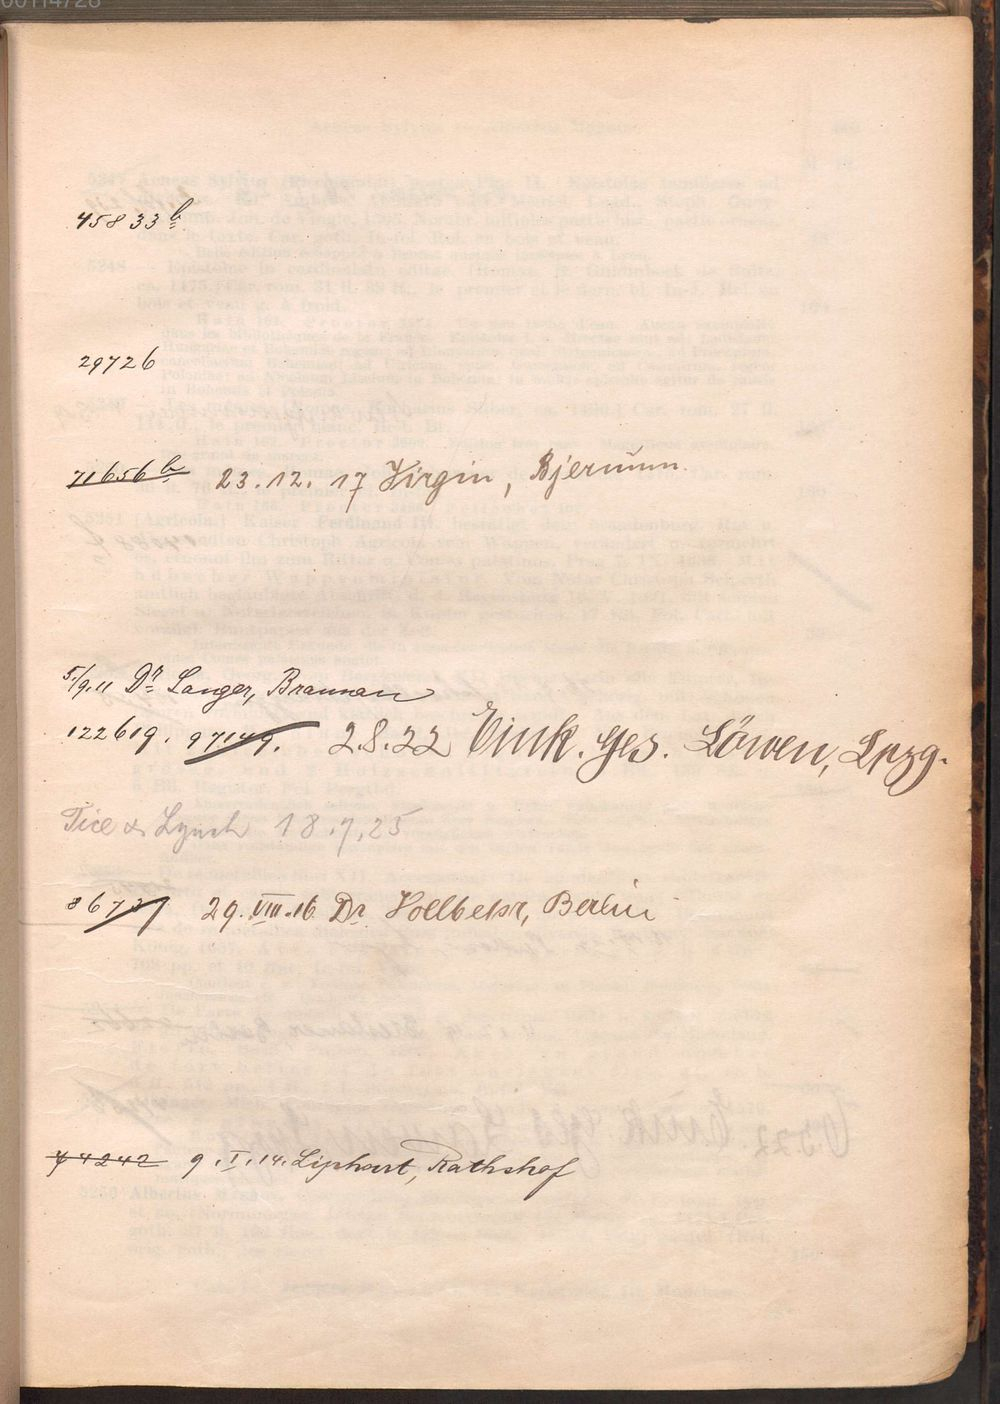 45833 b
29726
71656 b 23.12.17 Virgin, Bjernum.
5/9.11 Dr Langer, Braunau
122619. 97149. 2.8.22 Eink. Ges. Löwen, Lpzg.
Tice & Lynch 18.7.25
29.VIII.16 Dr. Vollbehr, Berlin
44242 9.I.14. Liphart, Rathshof